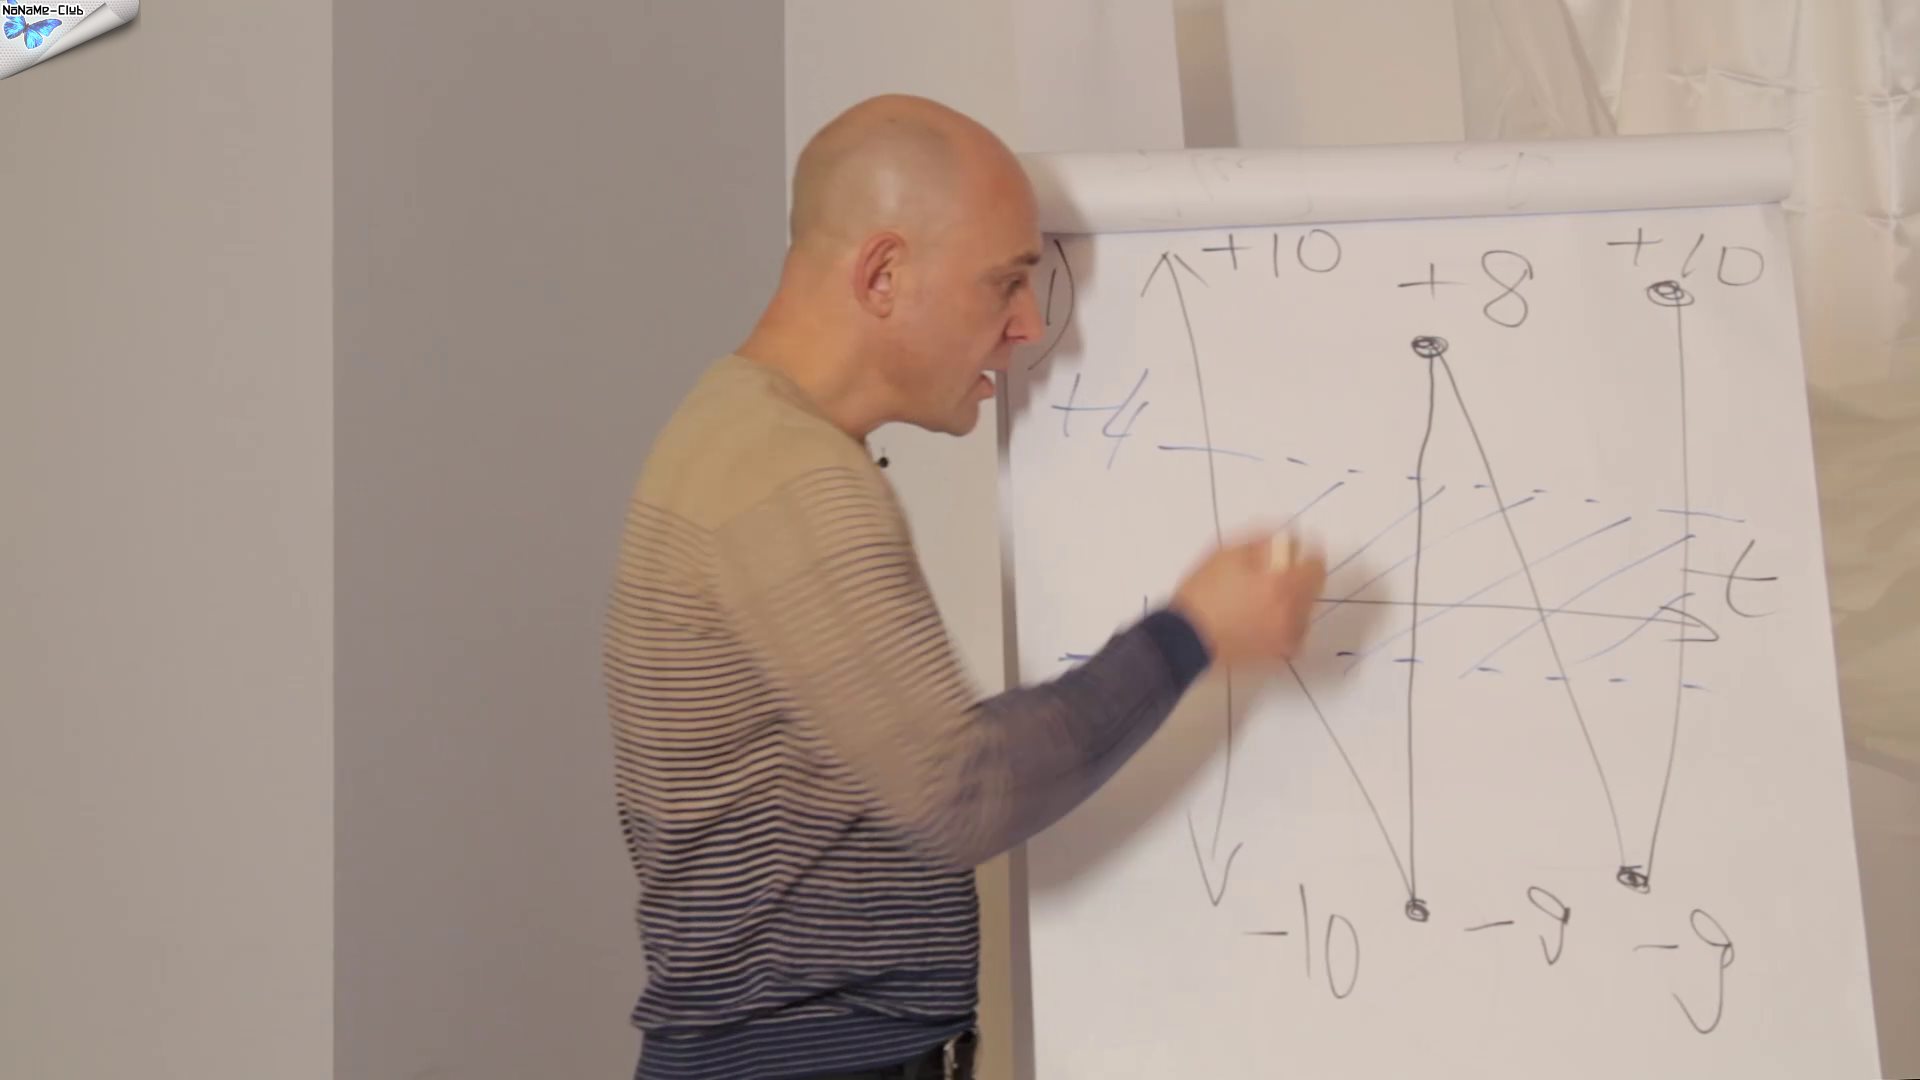 NoNaMe-Club
1)
+10
+8
+10
+4
t
-10
-9
-9